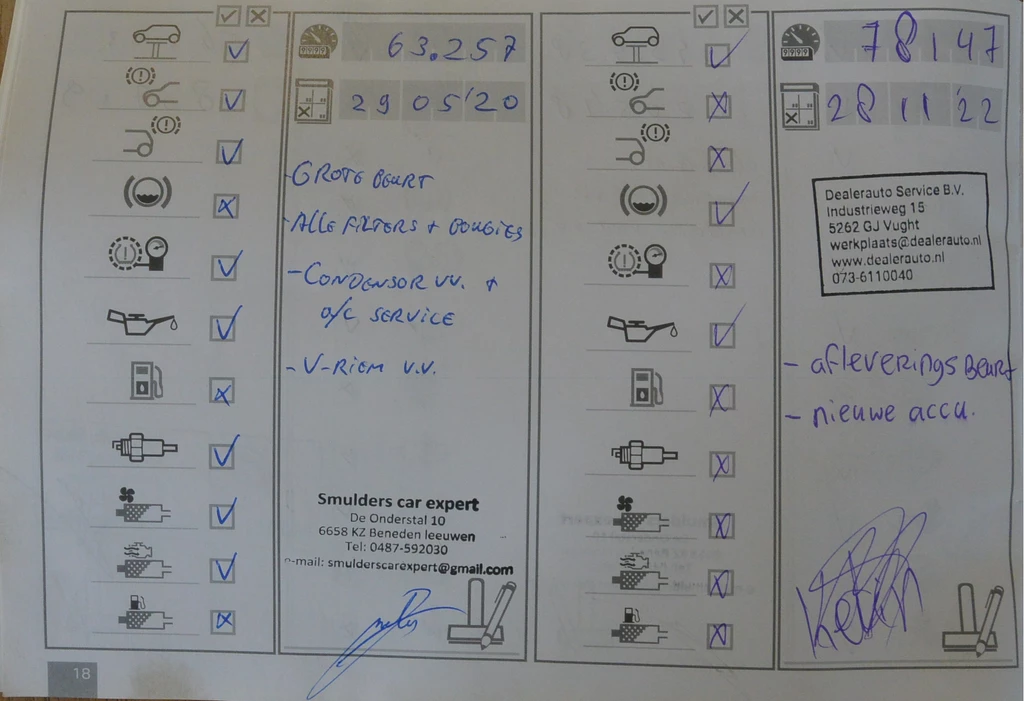 63.257
29 05 '20
- GROTE BEURT
- ALLE FILTERS + BOUGIES
- CONDENSOR VV. +
a/c SERVICE
- V-RIEM V.V.
Smulders car expert
De Onderstal 10
6658 KZ Beneden leeuwen
Tel: 0487-592030
e-mail: smulderscarexpert@gmail.com
18
78147
28 11 '22
Dealerauto Service B.V.
Industrieweg 15
5262 GJ Vught
werkplaats@dealerauto.nl
www.dealerauto.nl
073-6110040
- afleveringsBeurt
- nieuwe accu.